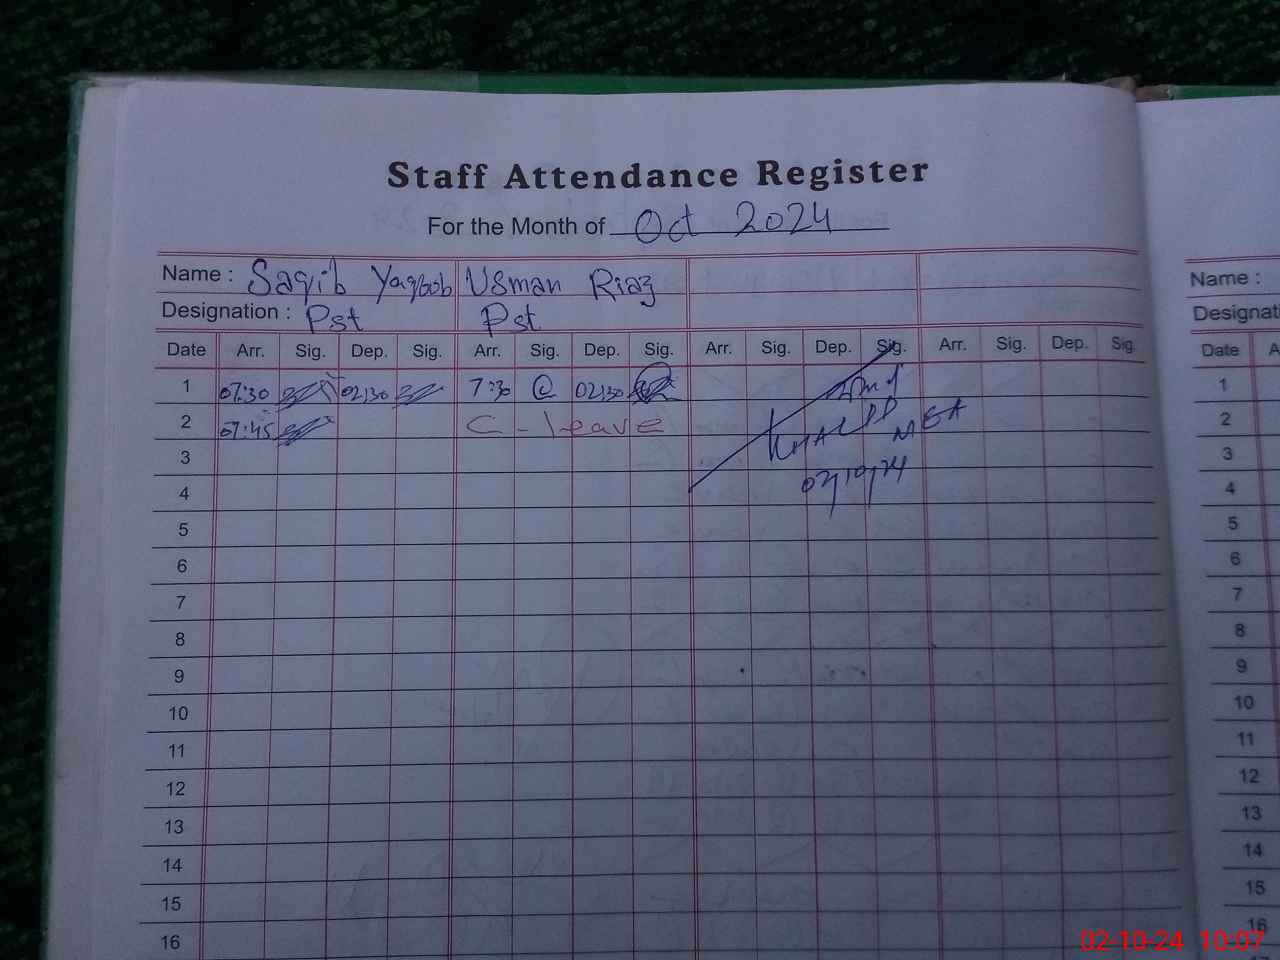 Staff Attendance Register
For the Month of Oct 2024
Name : Saqib Yaqoob Usman Riaz
Designation : Pst Pst
Date Arr. Sig. Dep. Sig. Arr. Sig. Dep. Sig. Arr. Sig. Dep. Sig. Arr. Sig. Dep. Sig.
1 07:30 02:30 7:30 02:30
2 07:45 C-leave
KHALID MEA
3
02/10/24
4
5
6
7
8
9
10
11
12
13
14
15
16
Name :
Designati
Date A
1
2
3
4
5
6
7
8
9
10
11
12
13
14
15
16
02-10-24 10:07